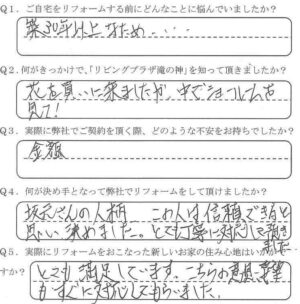 Q1. ご自宅をリフォームする前にどんなことに悩んでいましたか？
築30年以上なため・・・・
Q2. 何がきっかけで、「リビングプラザ滝の神」を知って頂きましたか？
花を買いに来ましたが、中でショールームを
見て！
Q3. 実際に弊社でご契約を頂く際、どのような不安をお持ちでしたか？
金額
Q4. 何が決め手となって弊社でリフォームをして頂けましたか？
坂元さんの人柄 この人は信頼できると
思い決めました。とても丁寧に対応して頂き
ました
Q5. 実際にリフォームをおこなった新しいお家の住み心地はいかがで
すか？
とても満足しています。こちらの意見、要望
もすぐに対応してもらいました。